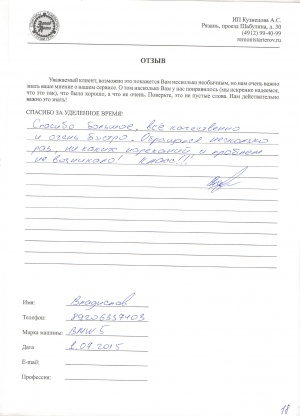 ИП Кузнецова А.С.
Рязань, проезд Шабулина, д. 30
(4912) 99-40-99
remontstarterov.ru
ОТЗЫВ
Уважаемый клиент, возможно это покажется Вам несколько необычным, но нам очень важно
знать ваше мнение о нашем сервисе. О том насколько Вам у нас понравилось (мы искренне надеемся,
что это так), что было хорошо, а что не очень. Поверьте, это не пустые слова. Нам действительно
важно это знать!
СПАСИБО ЗА УДЕЛЕННОЕ ВРЕМЯ!
Спасибо большое, всё качественно
и очень быстро. Обращался несколько
раз, ни каких нареканий и проблем
не возникало! Класс!!!
Имя: Владислав
Телефон: 89206337403
Марка машины: BMW 5
Дата 2.07.2015
E-mail:
Профессия:
18